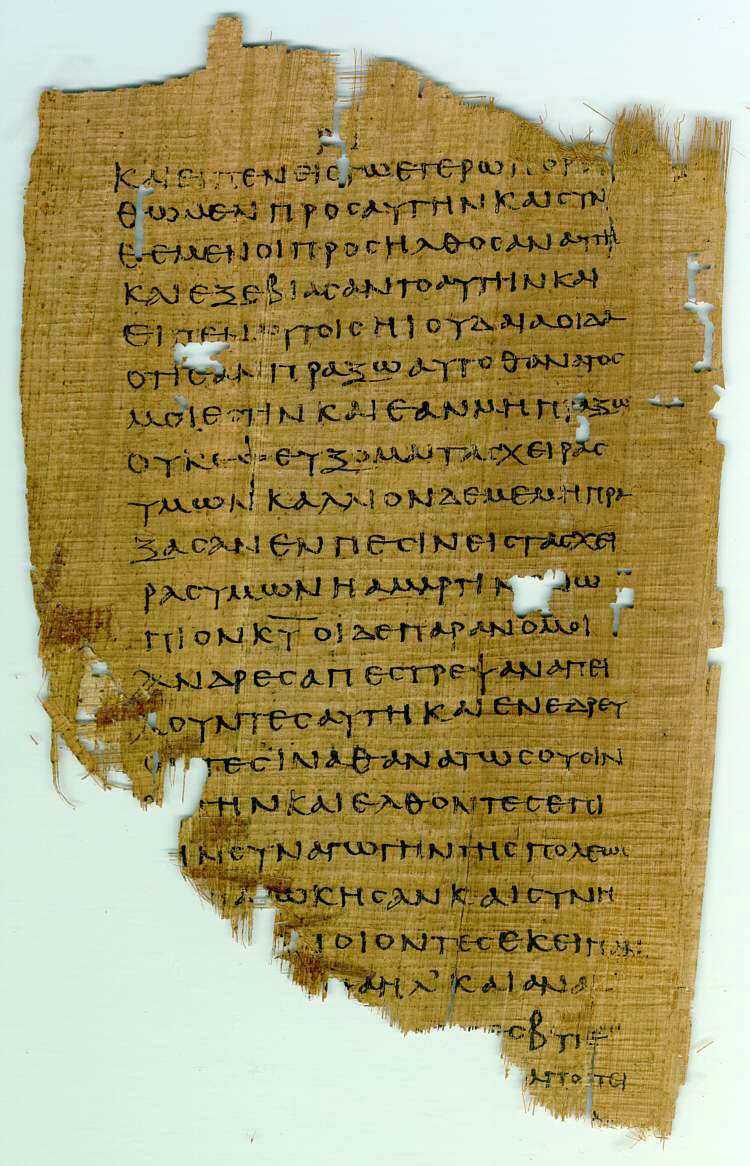 ⲕⲁⲓⲉⲓⲡⲉⲛⲉⲓⲥⲧⲱⲉⲧⲉⲣⲱⲡⲟⲣⲉ
ΘΩΜΕΝΠΡΟϹΑΥΤΗΝΚΑΙϹΥΝ
ΘΕΜΕΝΟΙΠΡΟϹΗΛΘΟϹΑΝΑΥΤΗ
ΚΑΙΕΞΕΒΙΑϹΑΝΤΟΑΥΤΗΝΚΑΙ
ΕΙΠΕΝΑΥΤΟΙϹΗΙΟΥΔΑΙΑΟΙΔΑ
ΟΤΙΕΑΝΠΡΑΞΩΑΥΤΟΘΑΝΑΤΟϹ
ΜΟΙΕϹΤΙΝΚΑΙΕΑΝΜΗΠΡΑΞΩ
ΟΥΚΕΚΦΕΥΞΟΜΑΙΤΑϹΧΕΙΡΑϹ
ΥΜΩΝΚΑΛΛΙΟΝΔΕΜΕΜΗΠΡΑ
ΞΑϹΑΝΕΝΠΕϹΙΝΕΙϹΤΑϹΧΕΙ
ΡΑϹΥΜΩΝΗΑΜΑΡΤΙΝΕΝΩ
ΠΙΟΝΚ̅Υ̅ΟΙΔΕΠΑΡΑΝΟΜΟΙ
ΑΝΔΡΕϹΑΠΕϹΤΡΕΨΑΝΑΠΕΙ
ΛΟΥΝΤΕϹΑΥΤΗΚΑΙΕΝΕΔΡΕΥ
ΟΝΤΕϹΙΝΑΘΑΝΑΤΩϹΟΥϹΙΝ
ΑΥΤΗΝΚΑΙΕΛΘΟΝΤΕϹΕΠΙ
ΗΝϹΥΝΑΓΩΓΗΝΤΗϹΠΟΛΕΩϹ
ΠΑΡΩΚΗϹΑΝΚΑΙϹΥΝΗ
ΟΙΟΝΤΕϹΕΚΕΙΠΑΝ
ΑΗΛΚΑΙΑΝΑ
ΕϹΒΥΤΕ
ΑΠΟϹΤΕΙ